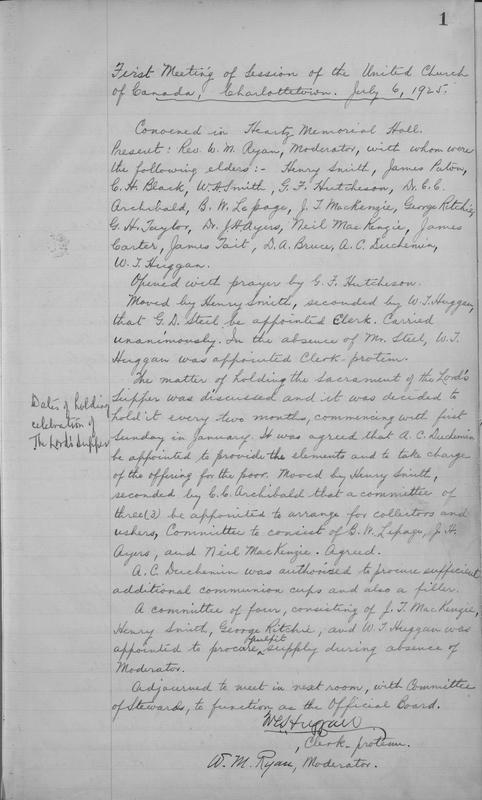 1
First Meeting of Session of the United Church
of Canada, Charlottetown. July 6, 1925.
Convened in Heartz Memorial Hall.
Present: Rev. W. M. Ryan, Moderator, with whom were
the following elders:- Henry Smith, James Paton,
C. H. Black, W. H. Smith, G. F. Hutcheson, Dr. C. C.
Archibald, B. W. Lepage, J. T. MacKenzie, George Ritchie,
G. H. Taylor, Dr. J. H. Ayers, Neil MacKenzie, James
Carter, James Tait, D. A. Bruce, A. C. Duchemin,
W. T. Huggan.
Opened with prayer by G. F. Hutcheson.
Moved by Henry Smith, seconded by W. T. Huggan,
that G. D. Steel be appointed Clerk. Carried
unanimously. In the absence of Mr. Steel, W. T.
Huggan was appointed Clerk-protem.
The matter of holding the Sacrament of the Lord's
Supper was discussed and it was decided to
Dates of holding
celebration of
The Lord's Supper
hold it every two months, commencing with first
Sunday in January. It was agreed that A. C. Duchemin
be appointed to provide the elements and to take charge
of the offering for the poor. Moved by Henry Smith,
seconded by C. C. Archibald that a committee of
three (3) be appointed to arrange for collectors and
ushers, Committee to consist of B. W. Lepage, J. H.
Ayers, and Neil MacKenzie. Agreed.
A. C. Duchemin was authorised to procure sufficient
additional communion cups and also a filler.
A committee of four, consisting of J. T. MacKenzie,
Henry Smith, George Ritchie, and W. T. Huggan was
appointed to procure pulpit supply during absence of
Moderator.
Adjourned to meet in next room, with Committee
of Stewards, to function as the Official Board.
Huggan
Clerk-protem.
W. M. Ryan, Moderator.